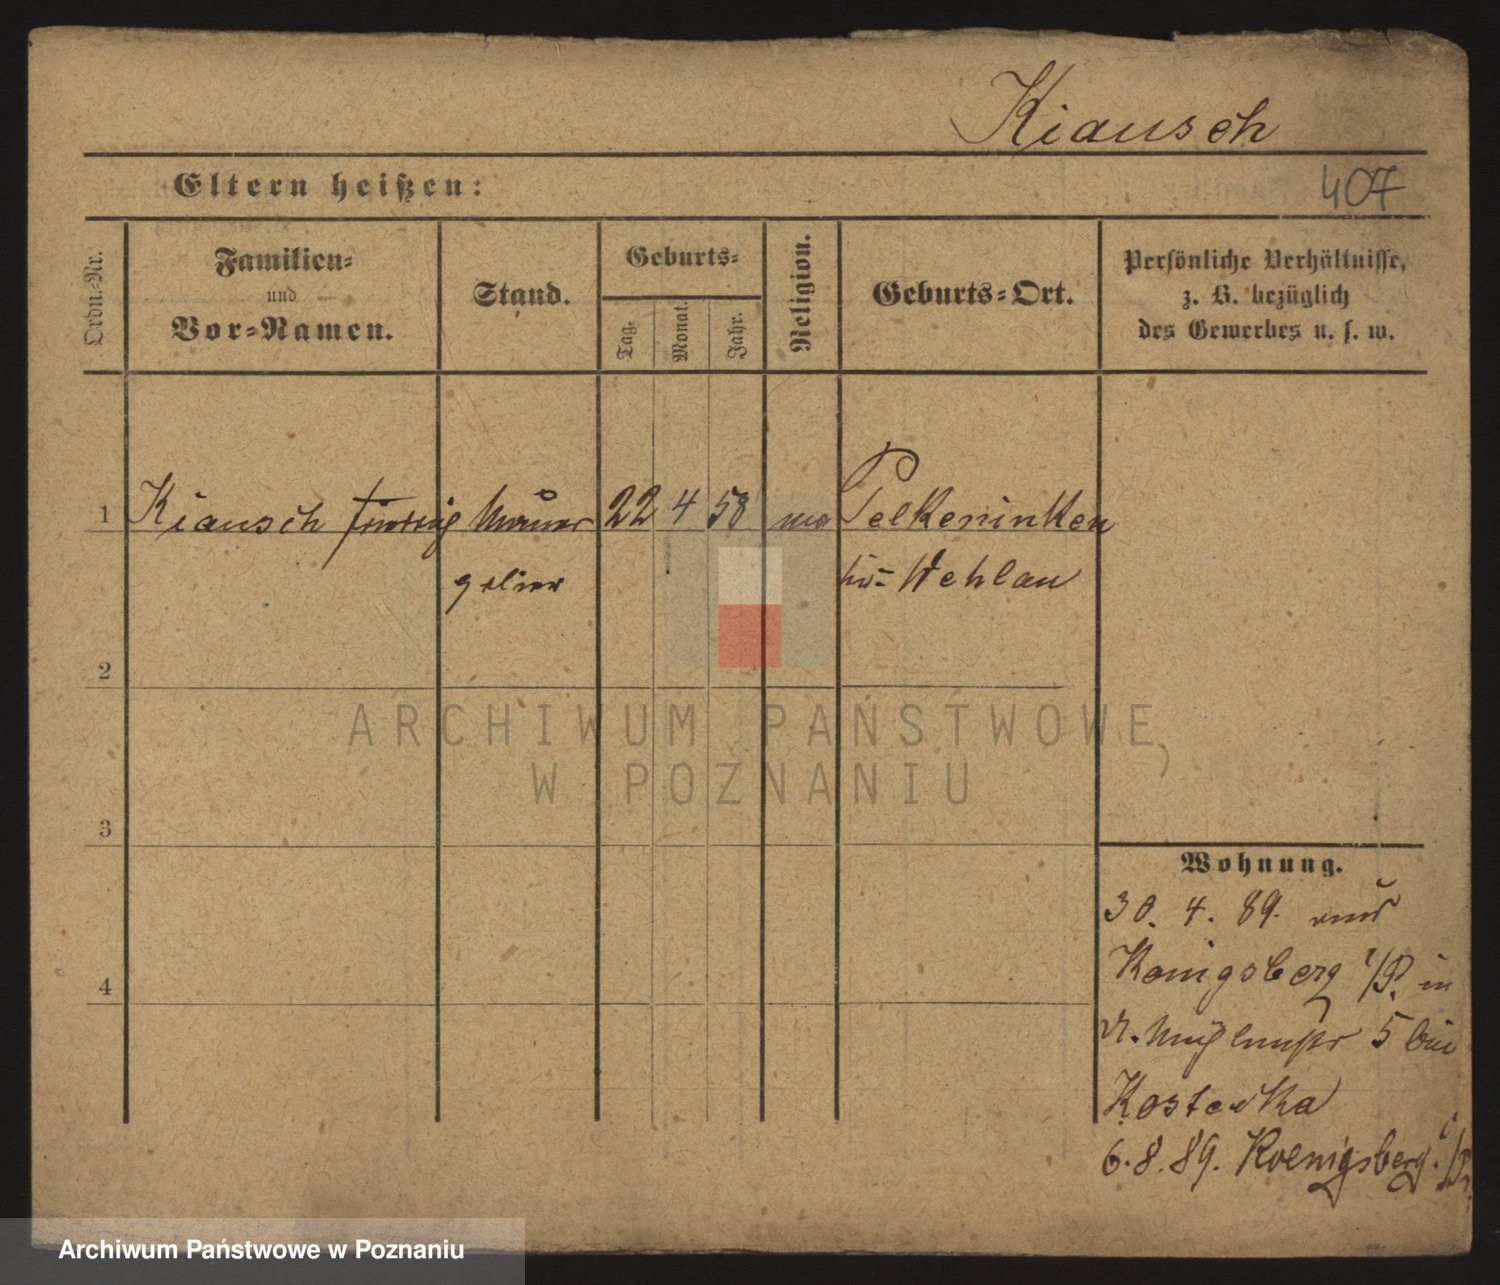 Kiausch
Eltern heißen:
407
Ordn.-Nr.
Familien-
und
Vor-Namen.
Stand.
Geburts-
Tag.
Monat.
Jahr.
Religion.
Geburts-Ort.
Persönliche Verhältnisse,
z. B. bezüglich
des Gewerbes u. s. w.
1 Kiausch Friedrich Maurer 22 4 58 Pelkeninken
Wehlau
2
ARCHIWUM PAŃSTWOWE
W POZNANIU
3
4
Wohnung.
30. 4. 89. aus
Konigsberg i/P. in
5 bei
Kosteika
6. 8. 89. Koenigsberg i/P.
Archiwum Państwowe w Poznaniu